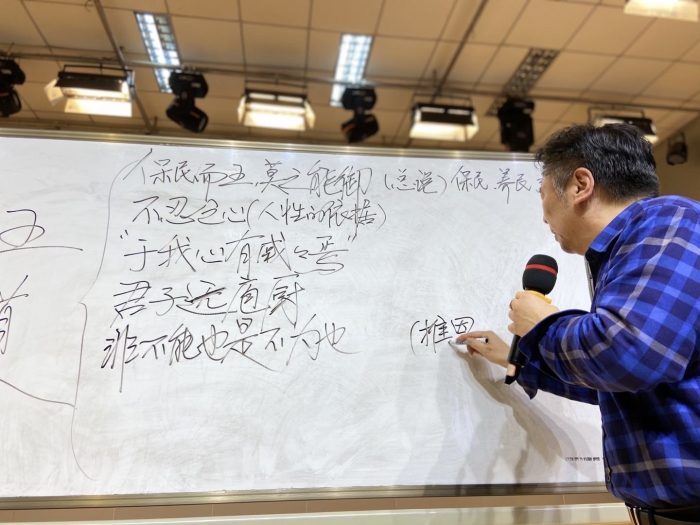 王
保民而王,莫之能御 (总说) 保民 养民
不忍之心(人性的依据)
“于我心有戚戚焉”
君子远庖厨
非不能也是不为也 (推因